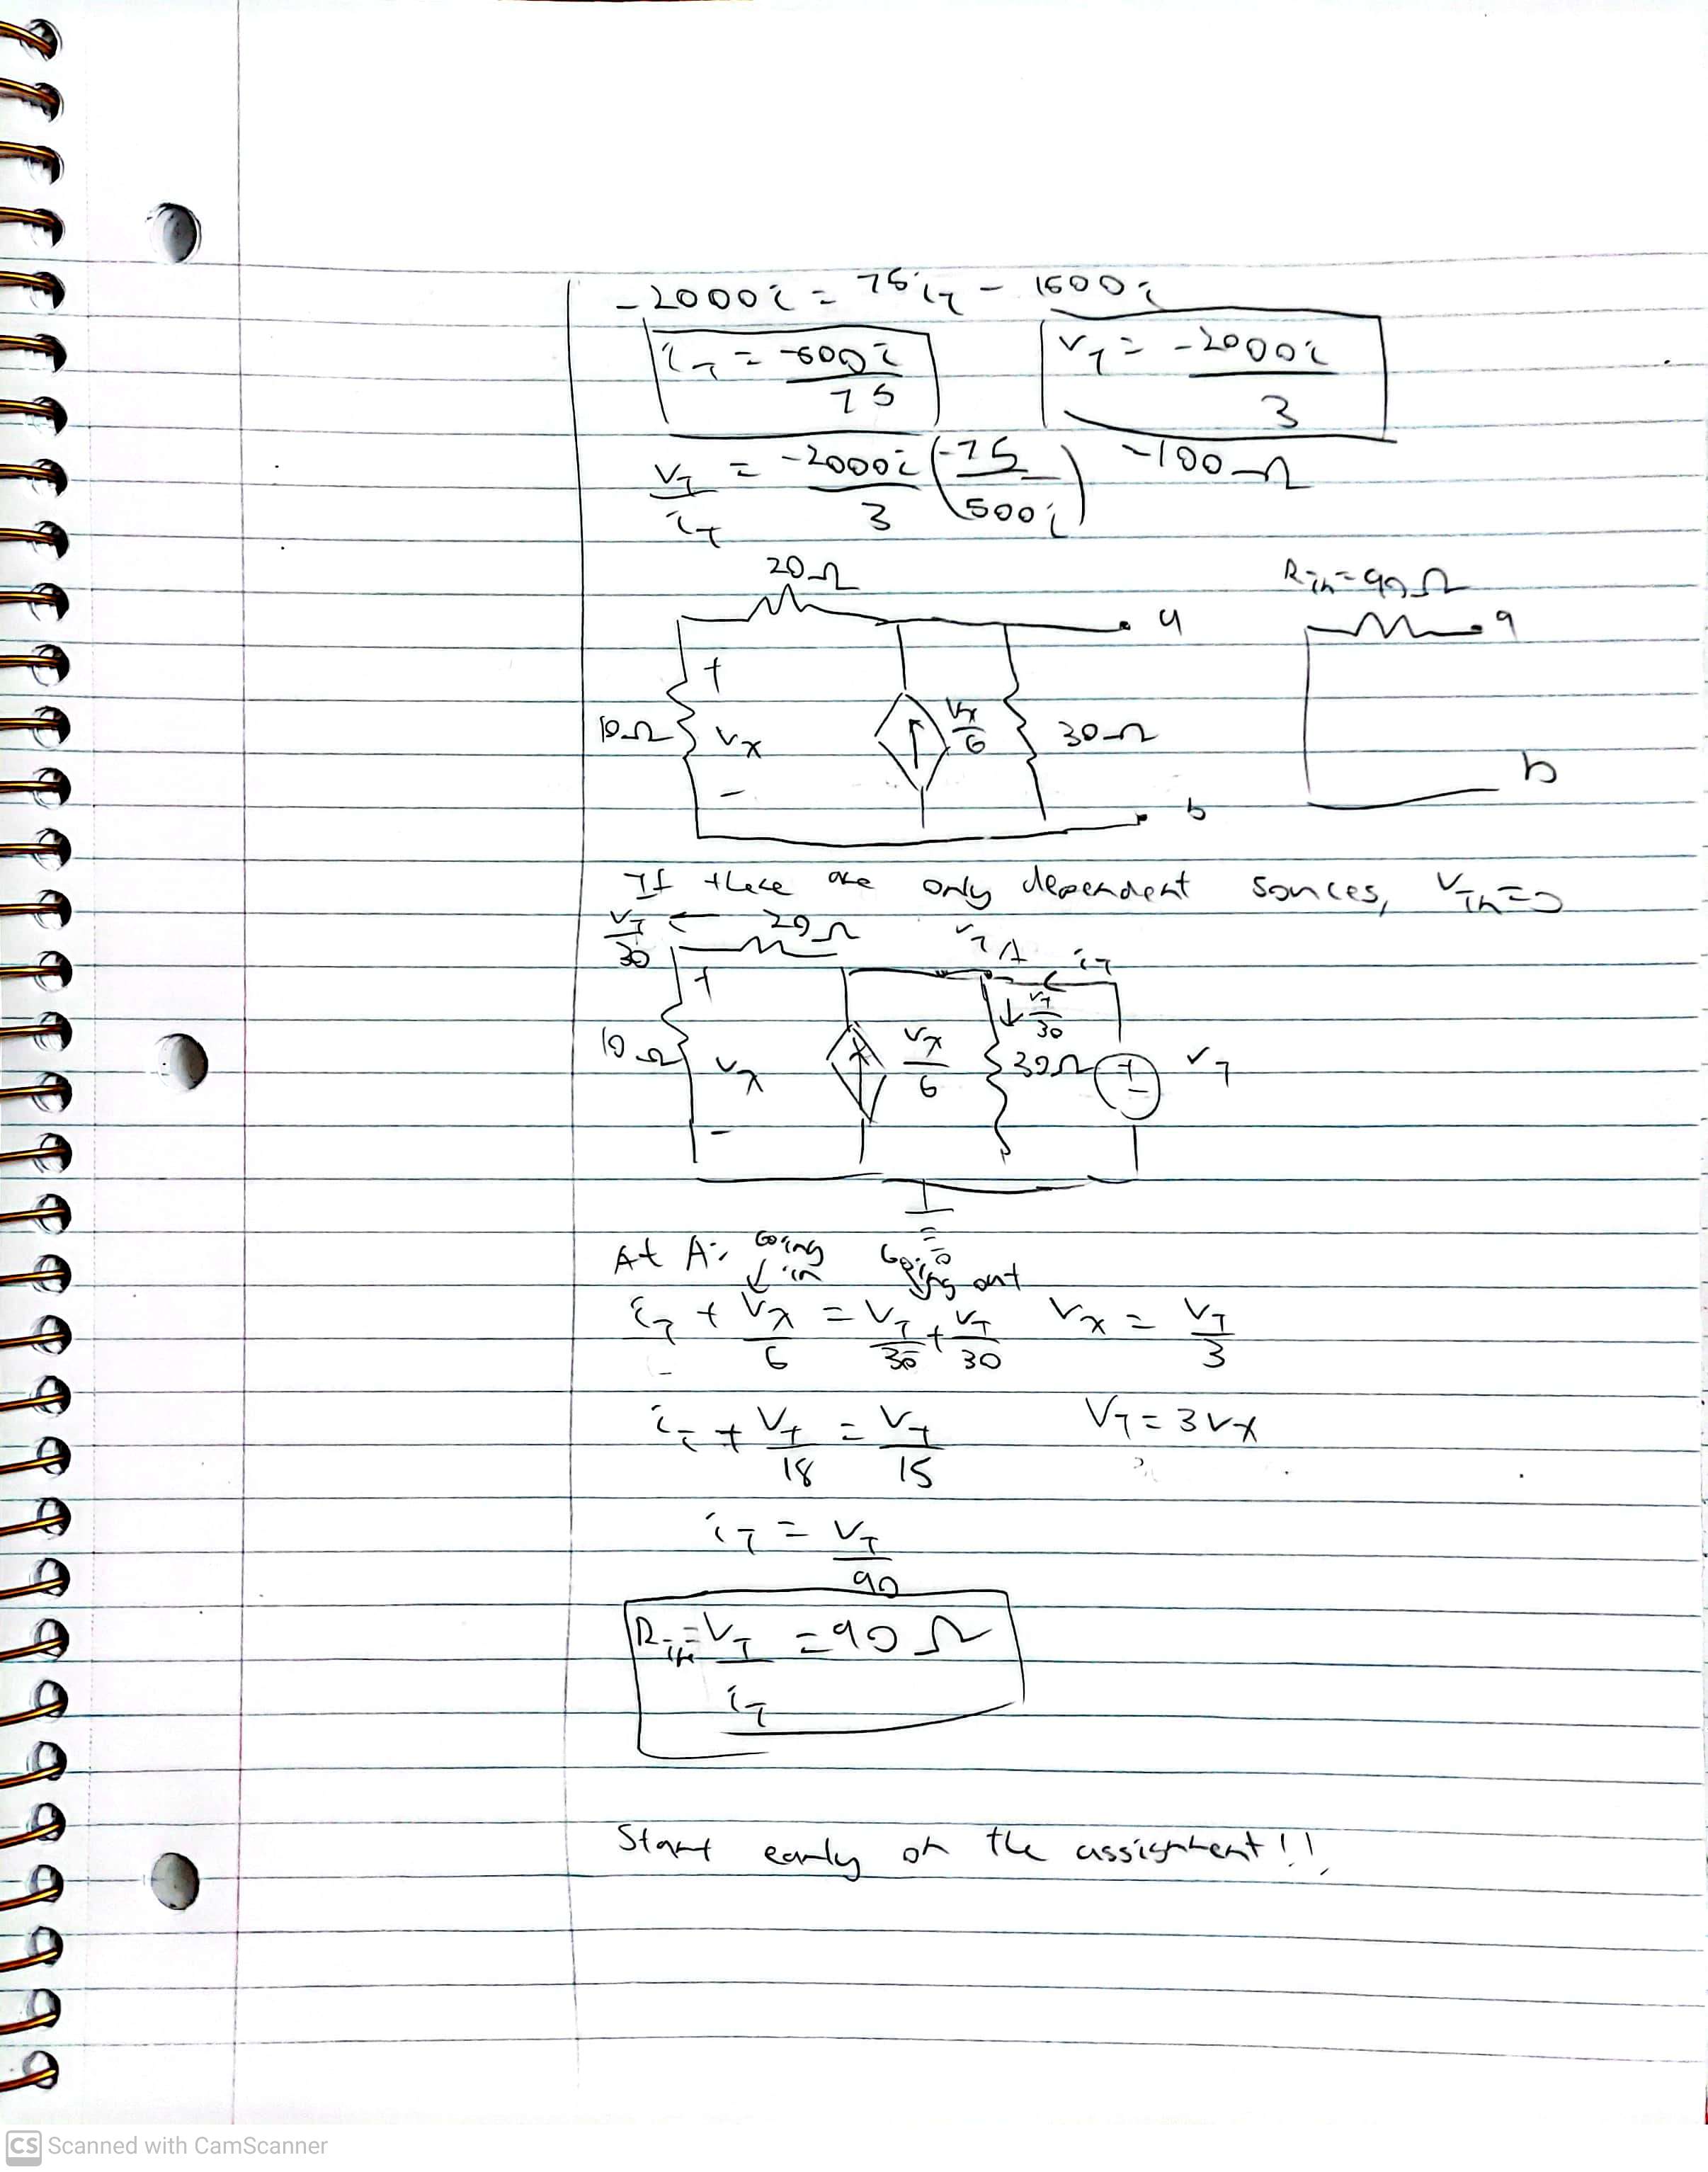 -2000i = 75i_T - 1500i
i_T = -500i/75    V_T = -2000i/3
V_T/i_T = -2000i/3 (-75/500i)    -100Ω
20Ω    R_Th = 90Ω
a    a
+
10Ω    Vx    Vx/6    30Ω
-    b
b
If there are only dependent sources, V_Th = 0
V_T/30 ← 20Ω    V_T A    i_T
+    ↓ V_T/30
10Ω    Vx    Vx/6    30Ω    + -    V_T
-
At A: Going in    Going out
i_T + Vx/6 = V_T/30 + V_T/30    Vx = V_T/3
i_T + V_T/18 = V_T/15    V_T = 3Vx
i_T = V_T/90
R_Th = V_T/i_T = 90Ω
Start early on the assignment!!
CS Scanned with CamScanner